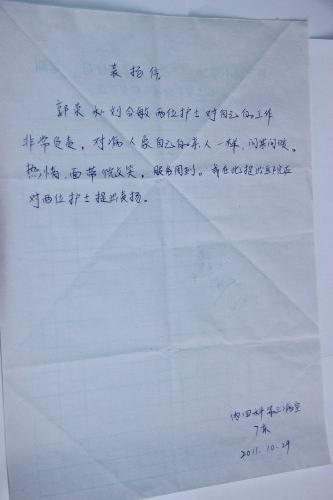 表扬信
郭荣 刘令敏两位护士对自己的工作
非常负责，对病人象自己的亲人一样，问寒问暖。
热情，面带微笑，服务周到。我在此提出
对两位护士提出表扬。
内四科第三病室
7床
2011.10.29